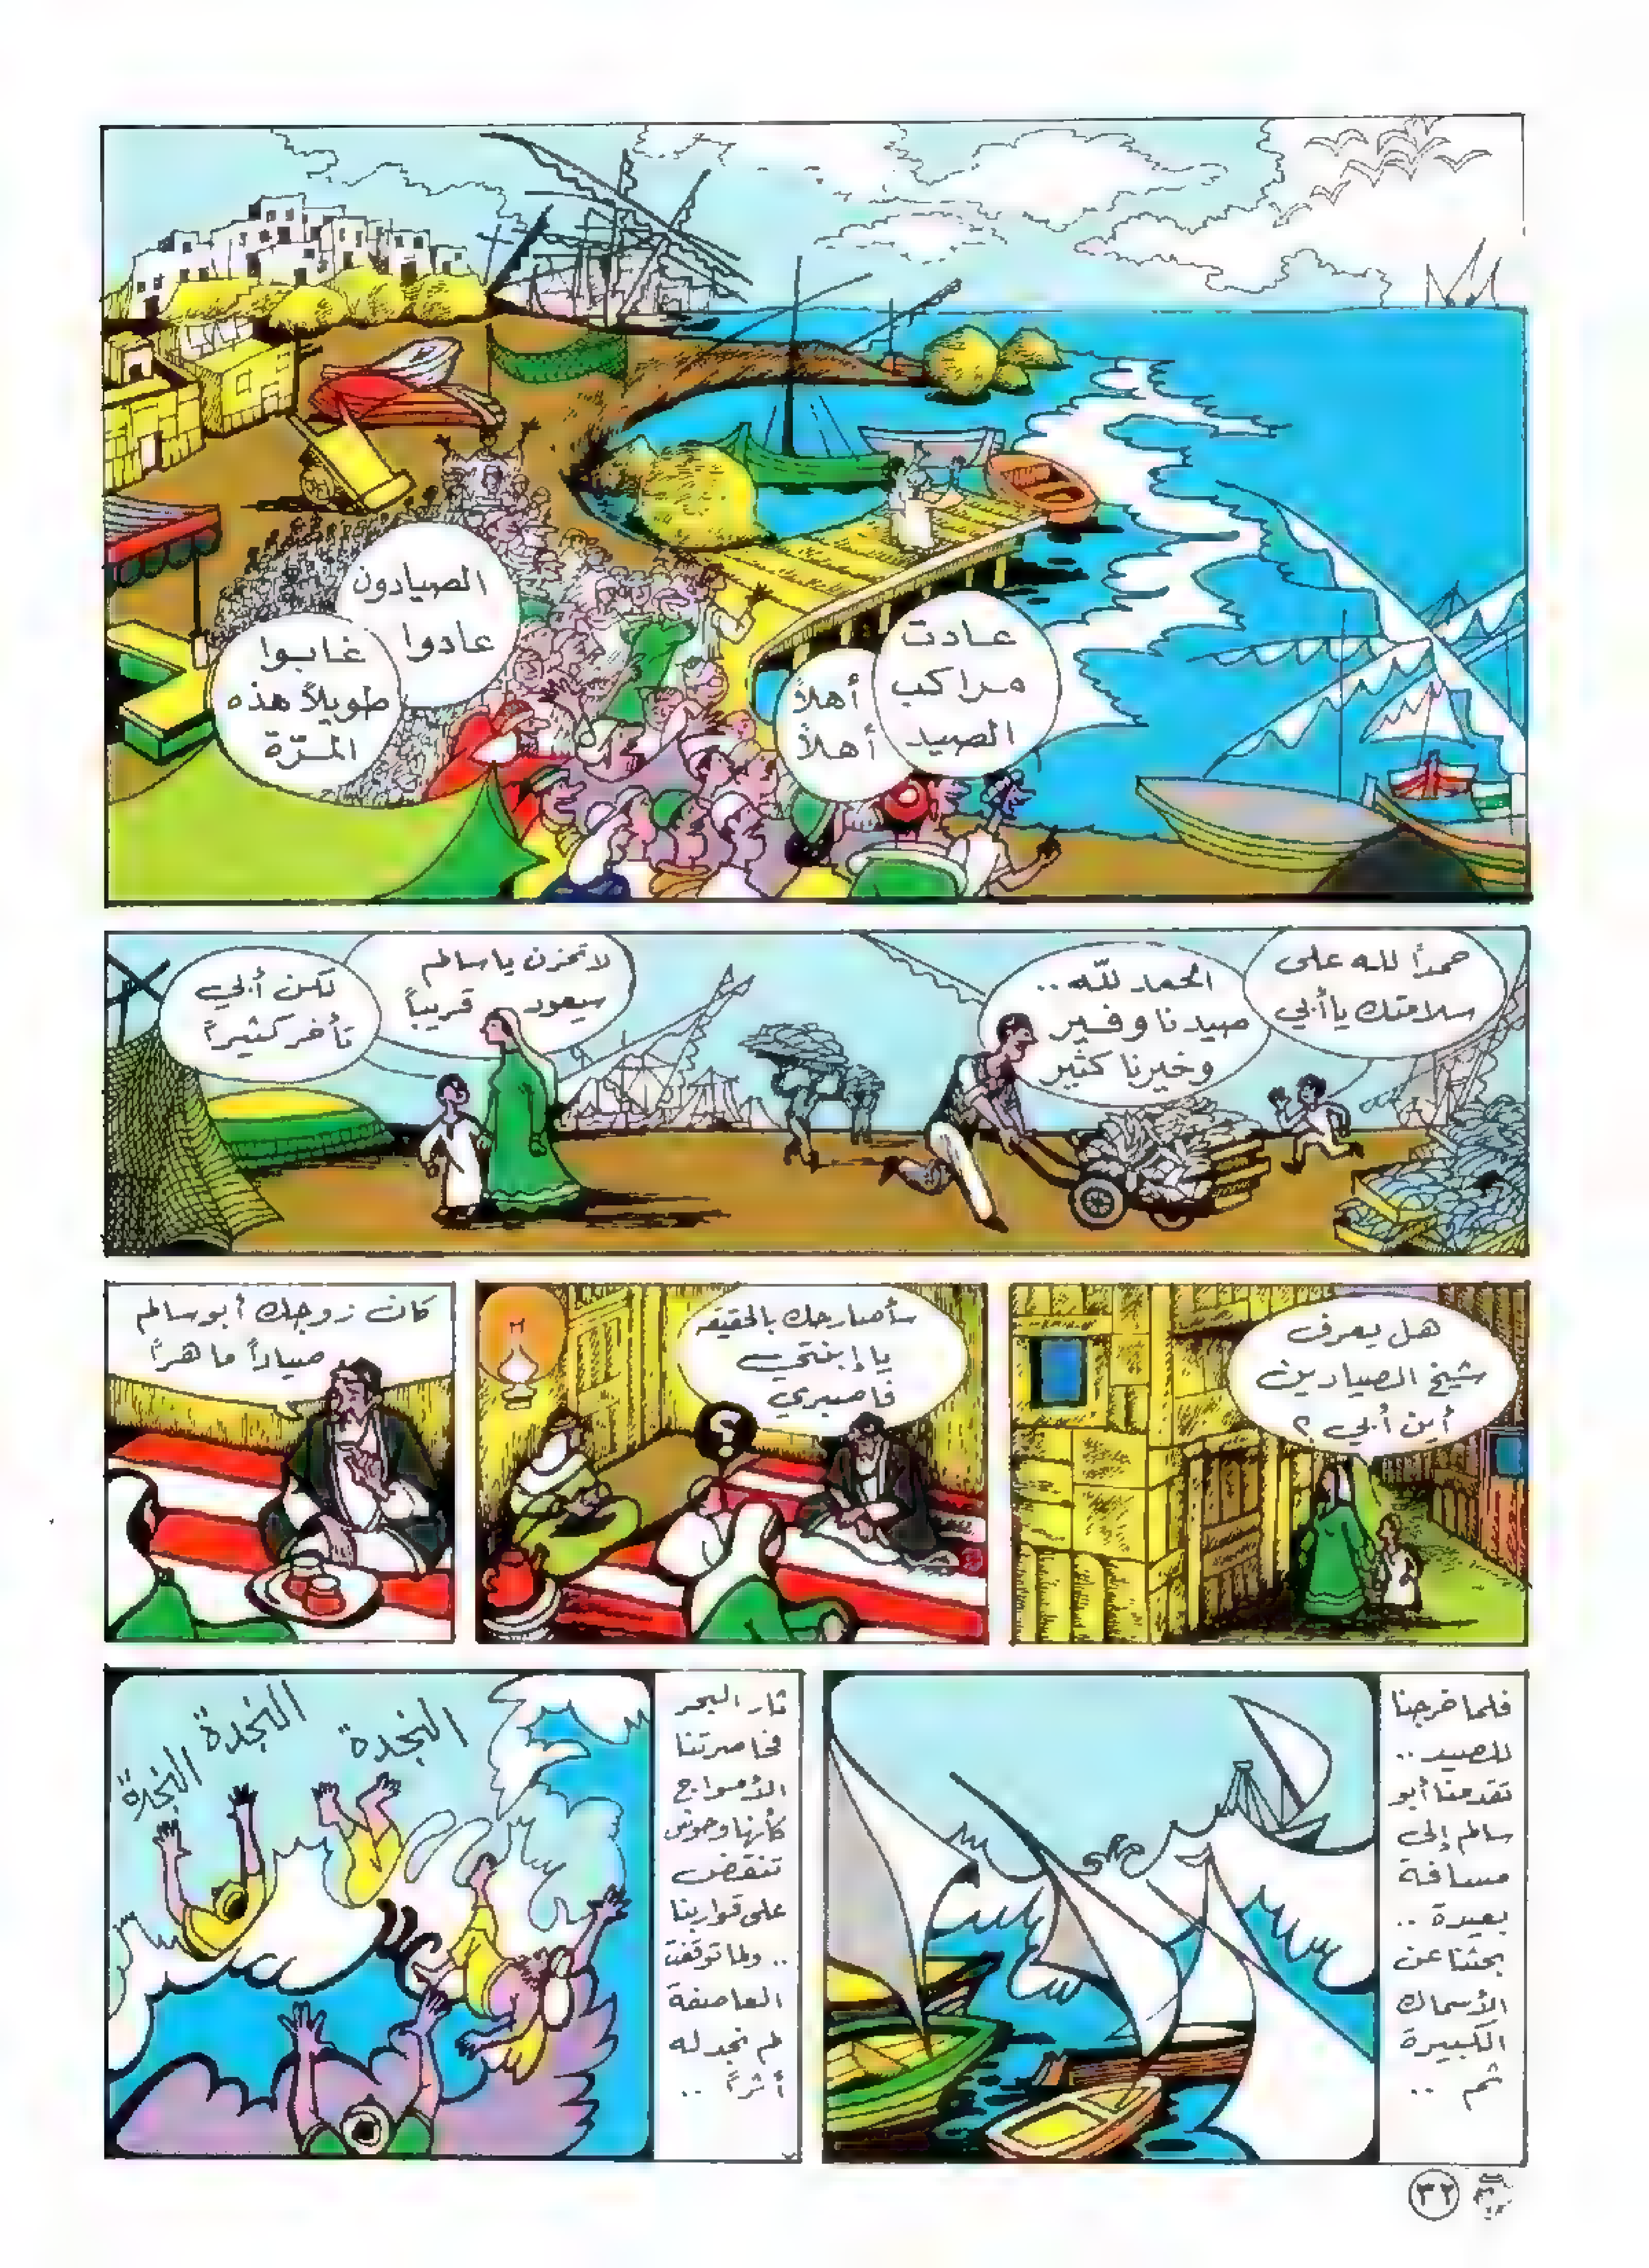 عادت
مراكب
الصيد
أهلاً
أهلاً
الصيادون
عادوا
غابوا
طويلاً هذه
المرّة
حمداً لله على
سلامتك يا أبي
الحمد للّه..
صيدنا وفير
وخيرنا كثير
لا تحزن يا سالم
سيعود قريباً
لكن أبي
تأخر كثيراً
هل يعرف
شيخ الصيادين
أين أبي ؟
سأصارحك بالحقيقة
يا إبنتي
فاصبري
؟
كان زوجك أبو سالم
صياداً ماهراً
فلما خرجنا
للصيد ..
تقدمنا أبو
سالم إلى
مسافة
بعيدة ..
بحثنا عن
الأسماك
الكبيرة
ثم ..
ثار البحر
فحاصرتنا
الأمواج
كأنها وحوش
تنقض
على قواربنا
.. ولما توقفت
العاصفة
لم نجد له
أثراً ..
النجدة
النجدة
النجدة
٣٢